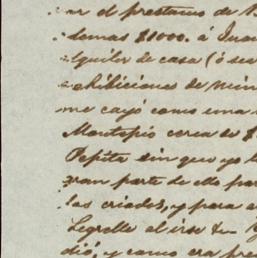 ar el prestamo de
demas $1000. á Juan
alquiler de casa (ó sea
exhibiciones de
me cayó como una
Montepio cerca de $
Pepita sin que yo
gran parte de ello par
las criadas, y para
Legrelle al irse
dió, y como era pre